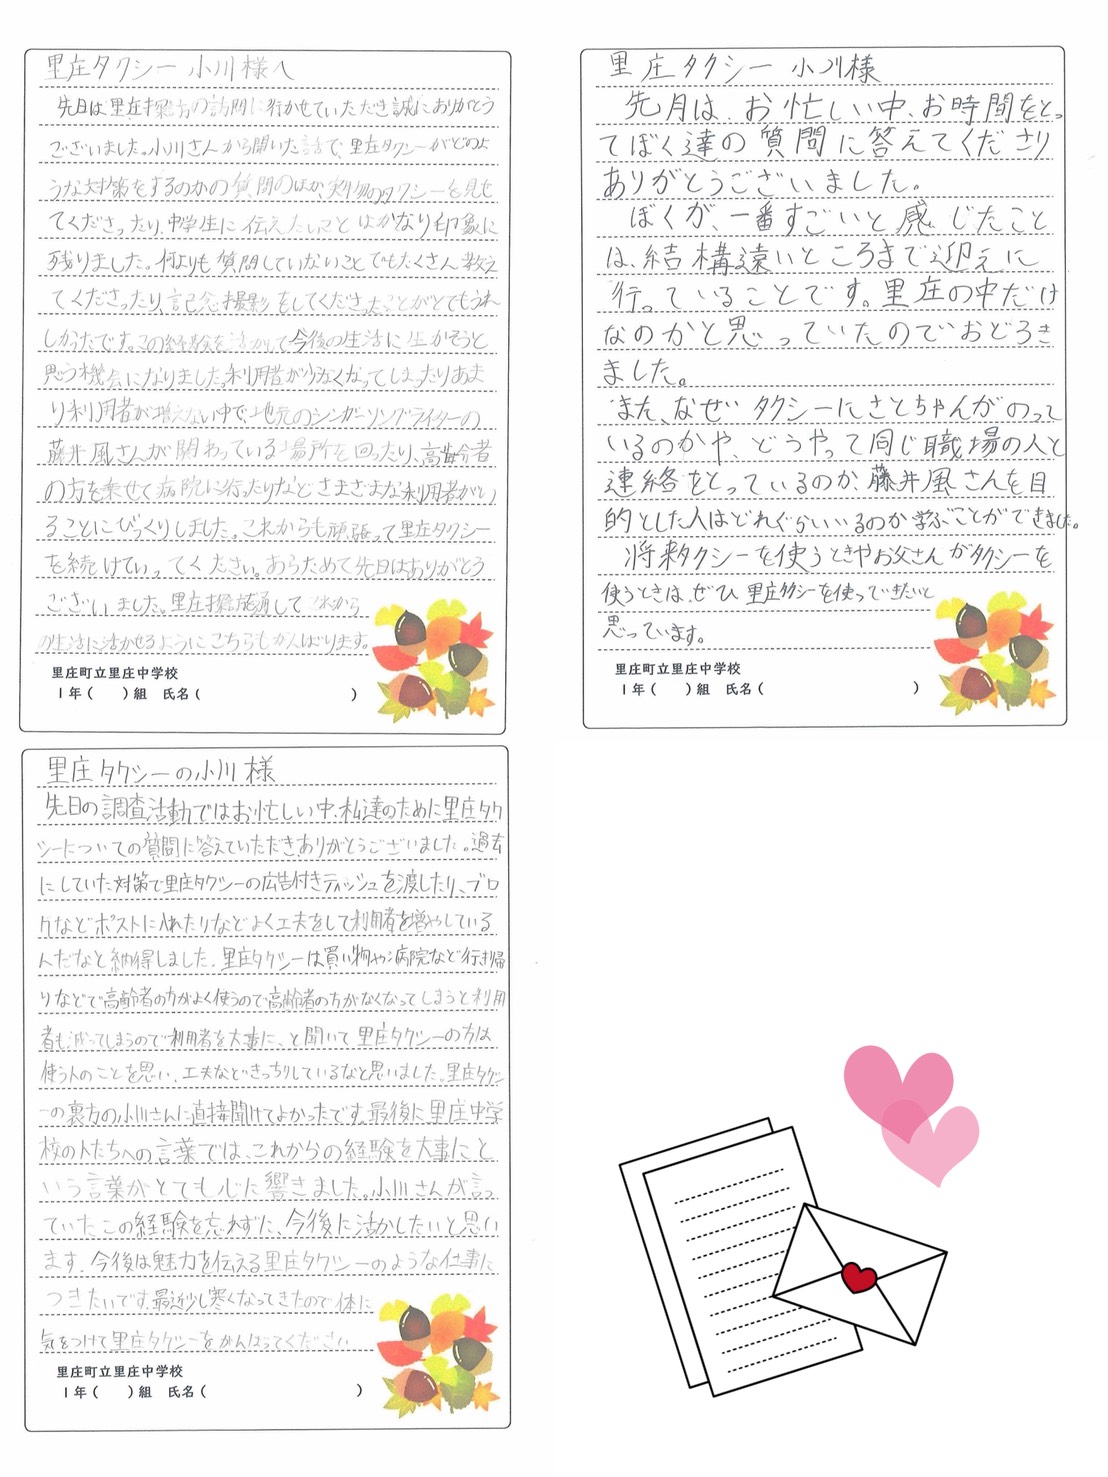 里庄タクシー 小川様へ
先日は里庄探究の訪問に行かせていただき誠にありがとう
ございました。小川さんから聞いた話で、里庄タクシーがどのよ
うな対策をするのかの質問のほか、実物のタクシーを見せ
てくださったり、中学生に伝えたいことはかなり印象に
残りました。何よりも質問していないことでもたくさん教え
てくださったり、記念撮影をしてくださったことがとてもうれ
しかったです。この経験を活かして今後の生活に生かそうと
思う機会になりました。利用者が少なくなってしまったりあま
り利用者が増えない中で、地元のシンガーソングライターの
藤井風さんが関わっている場所を回ったり、高齢者
の方を乗せて病院に行ったりなどさまざまな利用者がい
ることにびっくりしました。これからも頑張って里庄タクシー
を続けていってください。あらためて先日はありがとう
ございました。里庄探究を通して これから
の生活に活かせるようにこちらもがんばります。
里庄町立里庄中学校
1年( )組 氏名( )
里庄タクシー 小川様
先月は、お忙しい中、お時間をとっ
てぼく達の質問に答えてくださり
ありがとうございました。
ぼくが、一番すごいと感じたこと
は、結構遠いところまで迎えに
行っていることです。里庄の中だけ
なのかと思っていたのでおどろき
ました。
また、なぜ タクシーにさとちゃんがのって
いるのかや、どうやって同じ職場の人と
連絡をとっているのか、藤井風さんを目
的とした人はどれぐらいいるのか学ぶことができました。
将来タクシーを使うときやお父さんがタクシーを
使うときは、ぜひ 里庄タクシーを使っていきたいと
思っています。
里庄町立里庄中学校
1年( )組 氏名( )
里庄タクシーの小川様
先日の調査活動ではお忙しい中、私達のために里庄タク
シーについての質問に答えていただきありがとうございました。過去
にしていた対策で里庄タクシーの広告付きティッシュを渡したり、ブロ
グなどポストに入れたりなどよく工夫をして利用者を増やしている
んだなと納得しました。里庄タクシーは買い物や病院など行き帰
りなどで高齢者の方がよく使うので高齢者の方がなくなってしまうと利用
者も減ってしまうので利用者を大事に、と聞いて里庄タクシーの方は
使う人のことを思い、工夫などきっちりしているなと思いました。里庄タクシ
ーの裏方の小川さんに直接聞けてよかったです。最後に里庄中学
校の人たちへの言葉では、これからの経験を大事にと
いう言葉がとても心に響きました。小川さんが言っ
ていたこの経験を忘れずに、今後に活かしたいと思い
ます。今後は魅力を伝える里庄タクシーのような仕事に
つきたいです。最近少し寒くなってきたので体に
気をつけて里庄タクシーをがんばってください
里庄町立里庄中学校
1年( )組 氏名( )